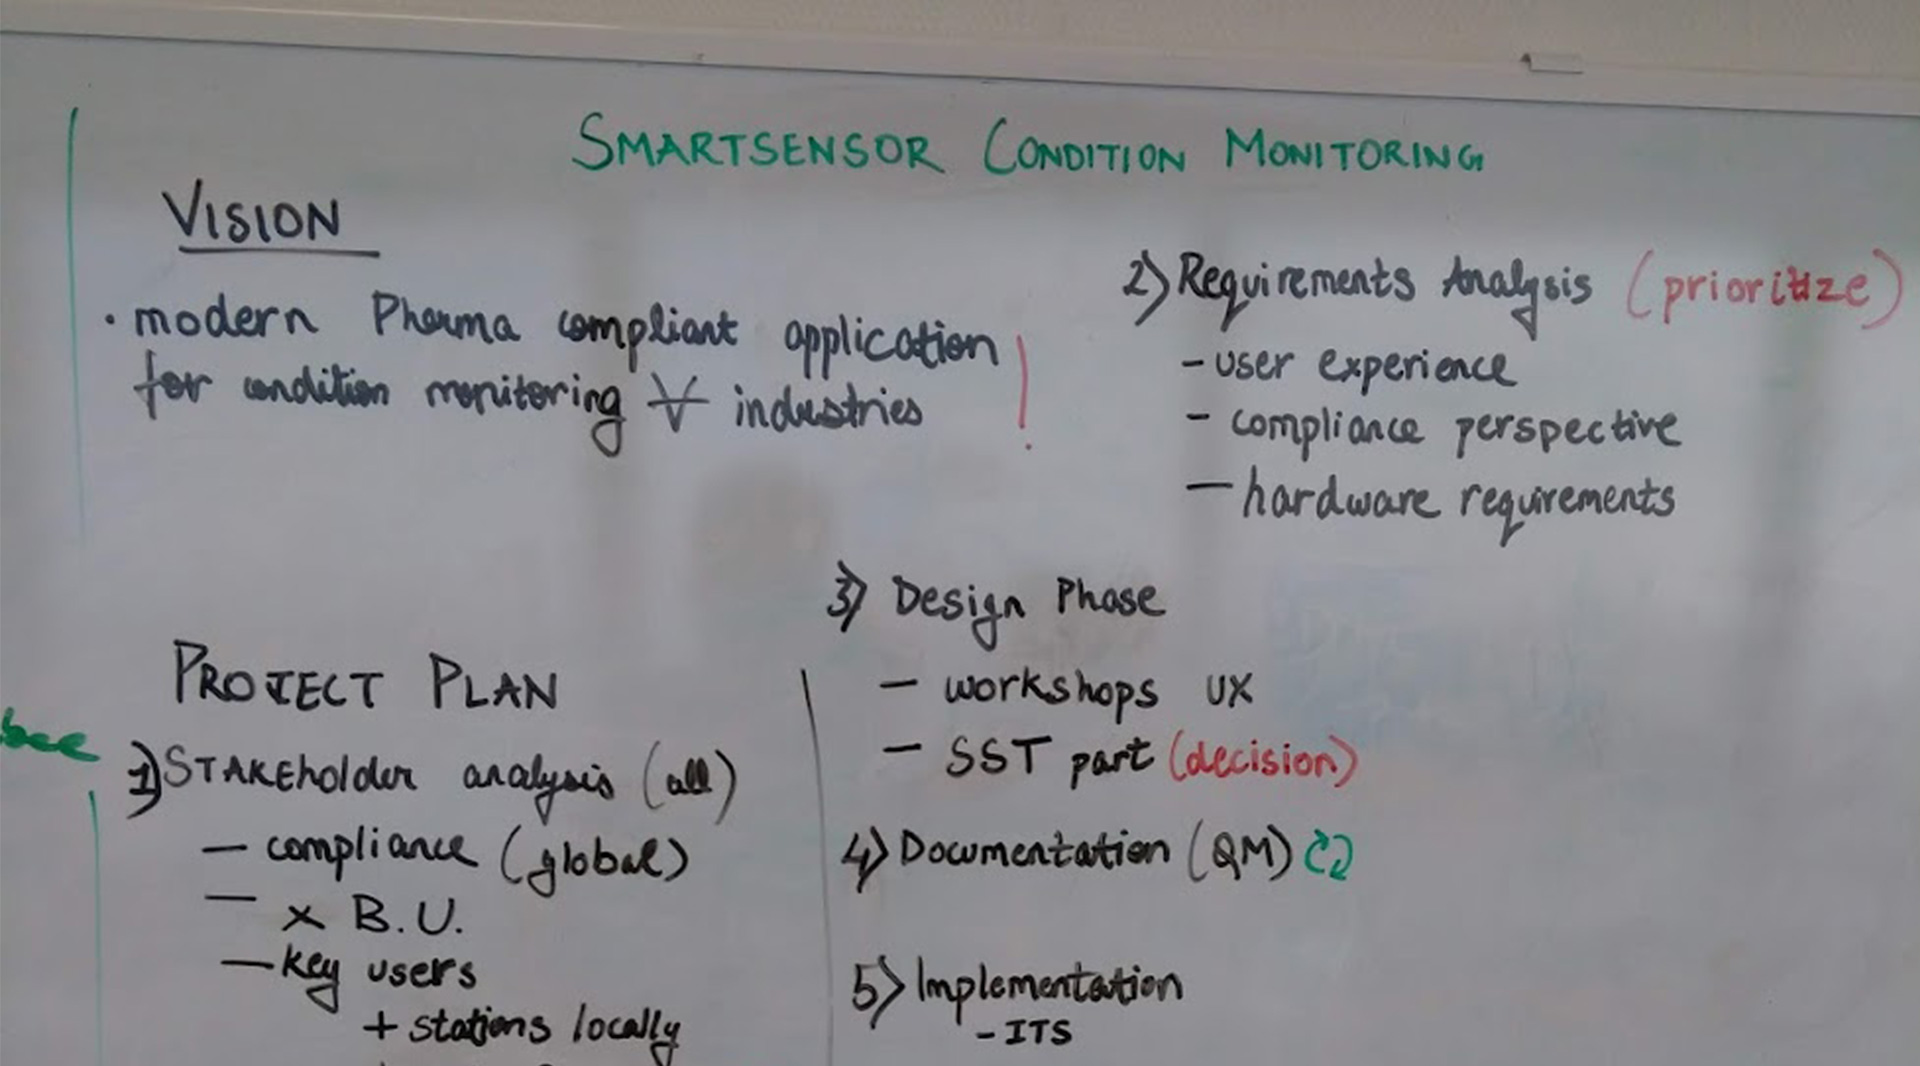 SMARTSENSOR CONDITION MONITORING
VISION
• modern Pharma compliant application
for condition monitoring ∀ industries !
PROJECT PLAN
1) STAKEholder analysis (all)
- compliance (global)
- x B.U.
- key users
+ stations locally
2) Requirements Analysis (prioritize)
- user experience
- compliance perspective
- hardware requirements
3) Design Phase
- workshops UX
- SST part (decision)
4) Documentation (QM)
5) Implementation
- ITS